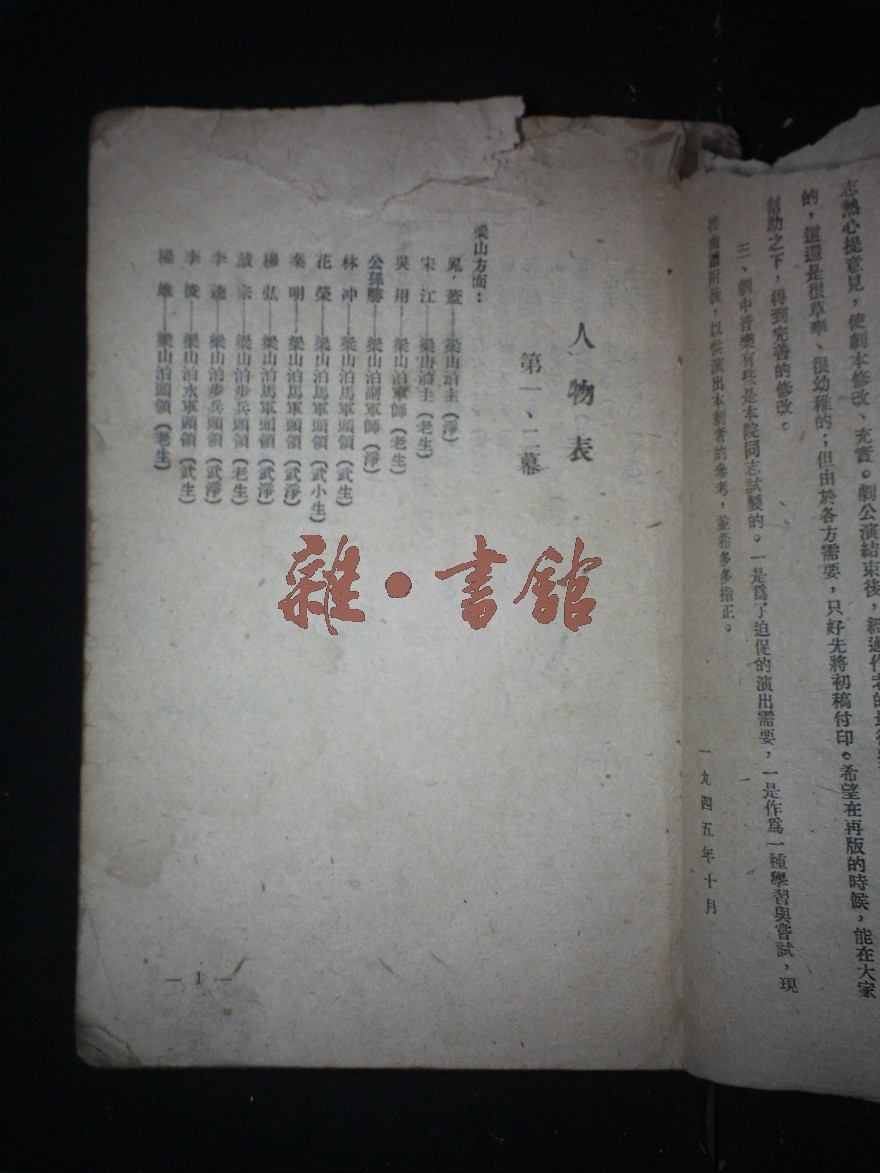 志熱心提意見，使劇本修改、充實。劇公演結束後，經過作者的最後
的，這還是很草率、很幼稚的；但由於各方需要，只好先將初稿付印。希望在再版的時候，能在大家
幫助之下，得到完善的修改。
三、劇中音樂有些是本院同志試製的。一是爲了迫促的演出需要，一是作爲一種學習與嘗試，現
將曲譜附後，以供演出本劇者的參考，並希多多指正。
一九四五年十月
人物表
第一、二幕
梁山方面：
晁蓋——梁山泊主（淨）
宋江——梁山泊主（老生）
吳用——梁山泊軍師（老生）
公孫勝——梁山泊副軍師（淨）
林冲——梁山泊馬軍頭領（武生）
花榮——梁山泊馬軍頭領（武小生）
秦明——梁山泊馬軍頭領（武淨）
穆弘——梁山泊馬軍頭領（武淨）
戴宗——梁山泊步兵頭領（老生）
李逵——梁山泊步兵頭領（武淨）
李俊——梁山泊水軍頭領（武生）
楊雄——梁山泊頭領（老生）
— 1 —
雜·書館